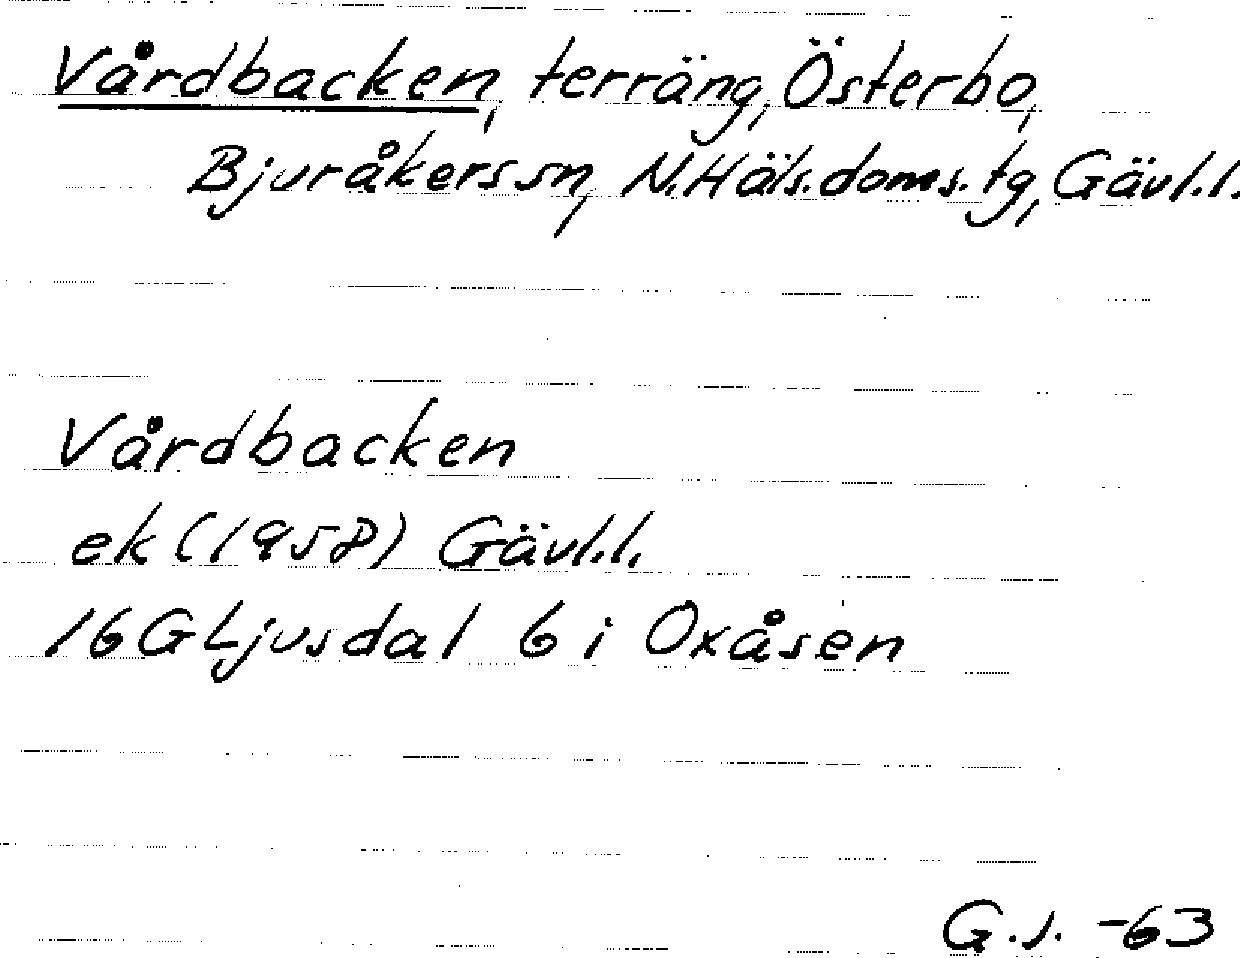 Vårdbacken, terräng, Österbo,
Bjuråkers sn, N.Häls.doms.tg, Gävl.l.
Vårdbacken
ek (1958) Gävl.l.
16G Ljusdal 6 i Oxåsen
G.J. -63